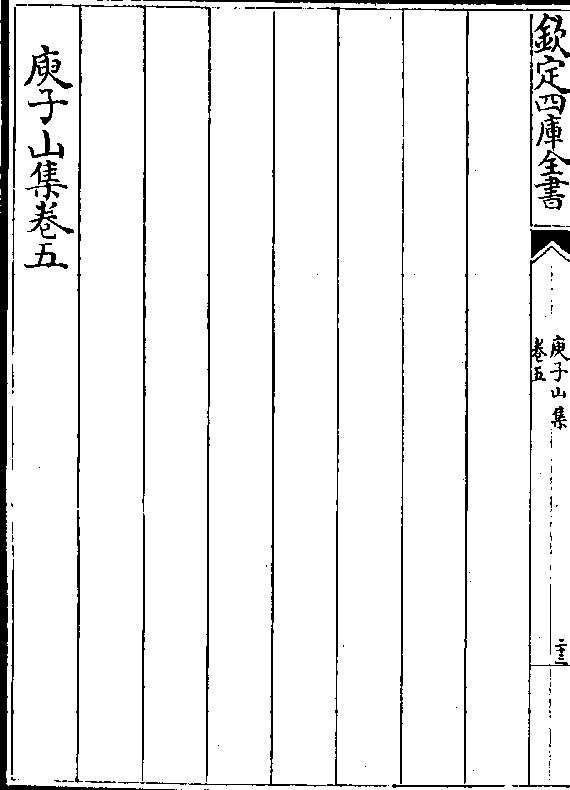 欽定四庫全書
庾子山集
卷五
二十三
庾子山集卷五